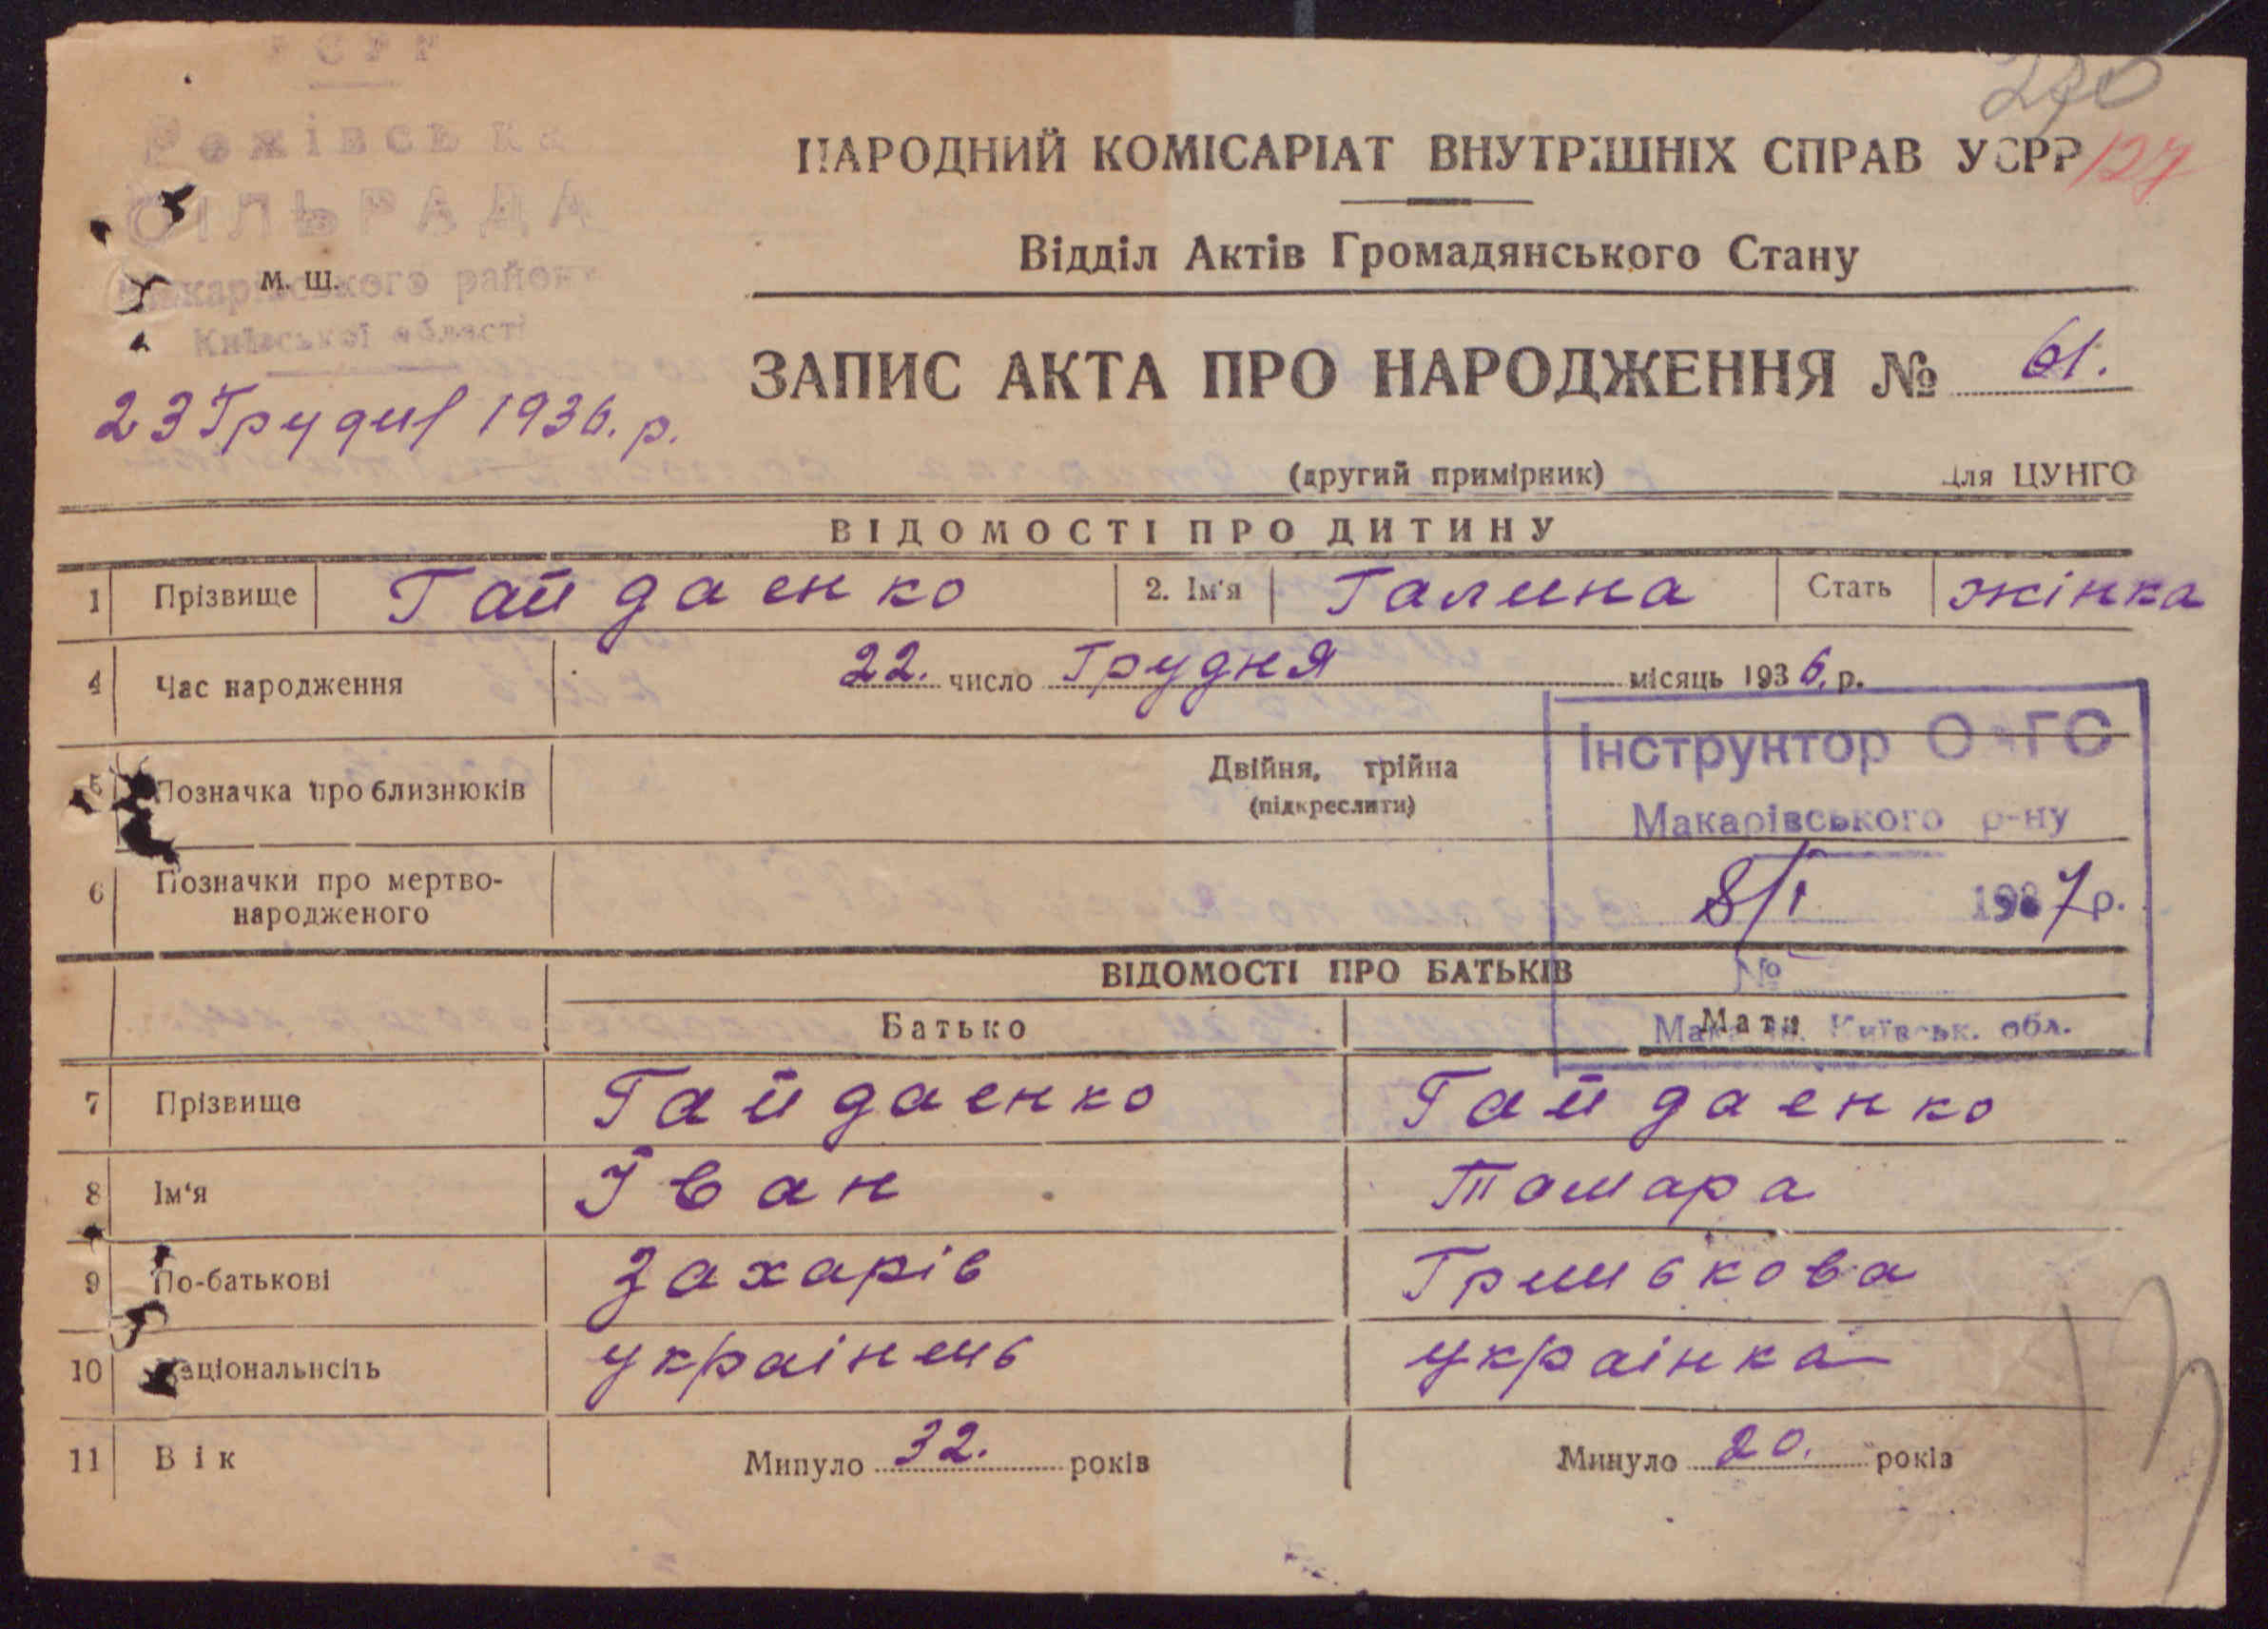 УСРР
Рожівська
СІЛЬРАДА
Макарівського району
Київської області
М. Ш.
23 Грудня 1936. р.
270
127
НАРОДНИЙ КОМІСАРІАТ ВНУТРІШНІХ СПРАВ УСРР
Відділ Актів Громадянського Стану
ЗАПИС АКТА ПРО НАРОДЖЕННЯ № 61.
(другий примірник) Для ЦУНГО
ВІДОМОСТІ ПРО ДИТИНУ
1 Прізвище Гайдаенко 2. Ім'я Галина Стать жінка
4 Час народження 22. число Грудня місяць 1936. р.
5 Позначка про близнюків Двійня, трійна
(підкреслити)
6 Позначки про мертво-
народженого
Інструктор ОАГС
Макарівського р-ну
8/I 1937 р.
№
Макарів, Київськ. обл.
ВІДОМОСТІ ПРО БАТЬКІВ
Батько Мати
7 Прізвище Гайдаенко Гайдаенко
8 Ім'я Іван Тамара
9 По-батькові Захарів Гриськова
10 Національнсіть українець українка
11 Вік Минуло 32. років Минуло 20. років